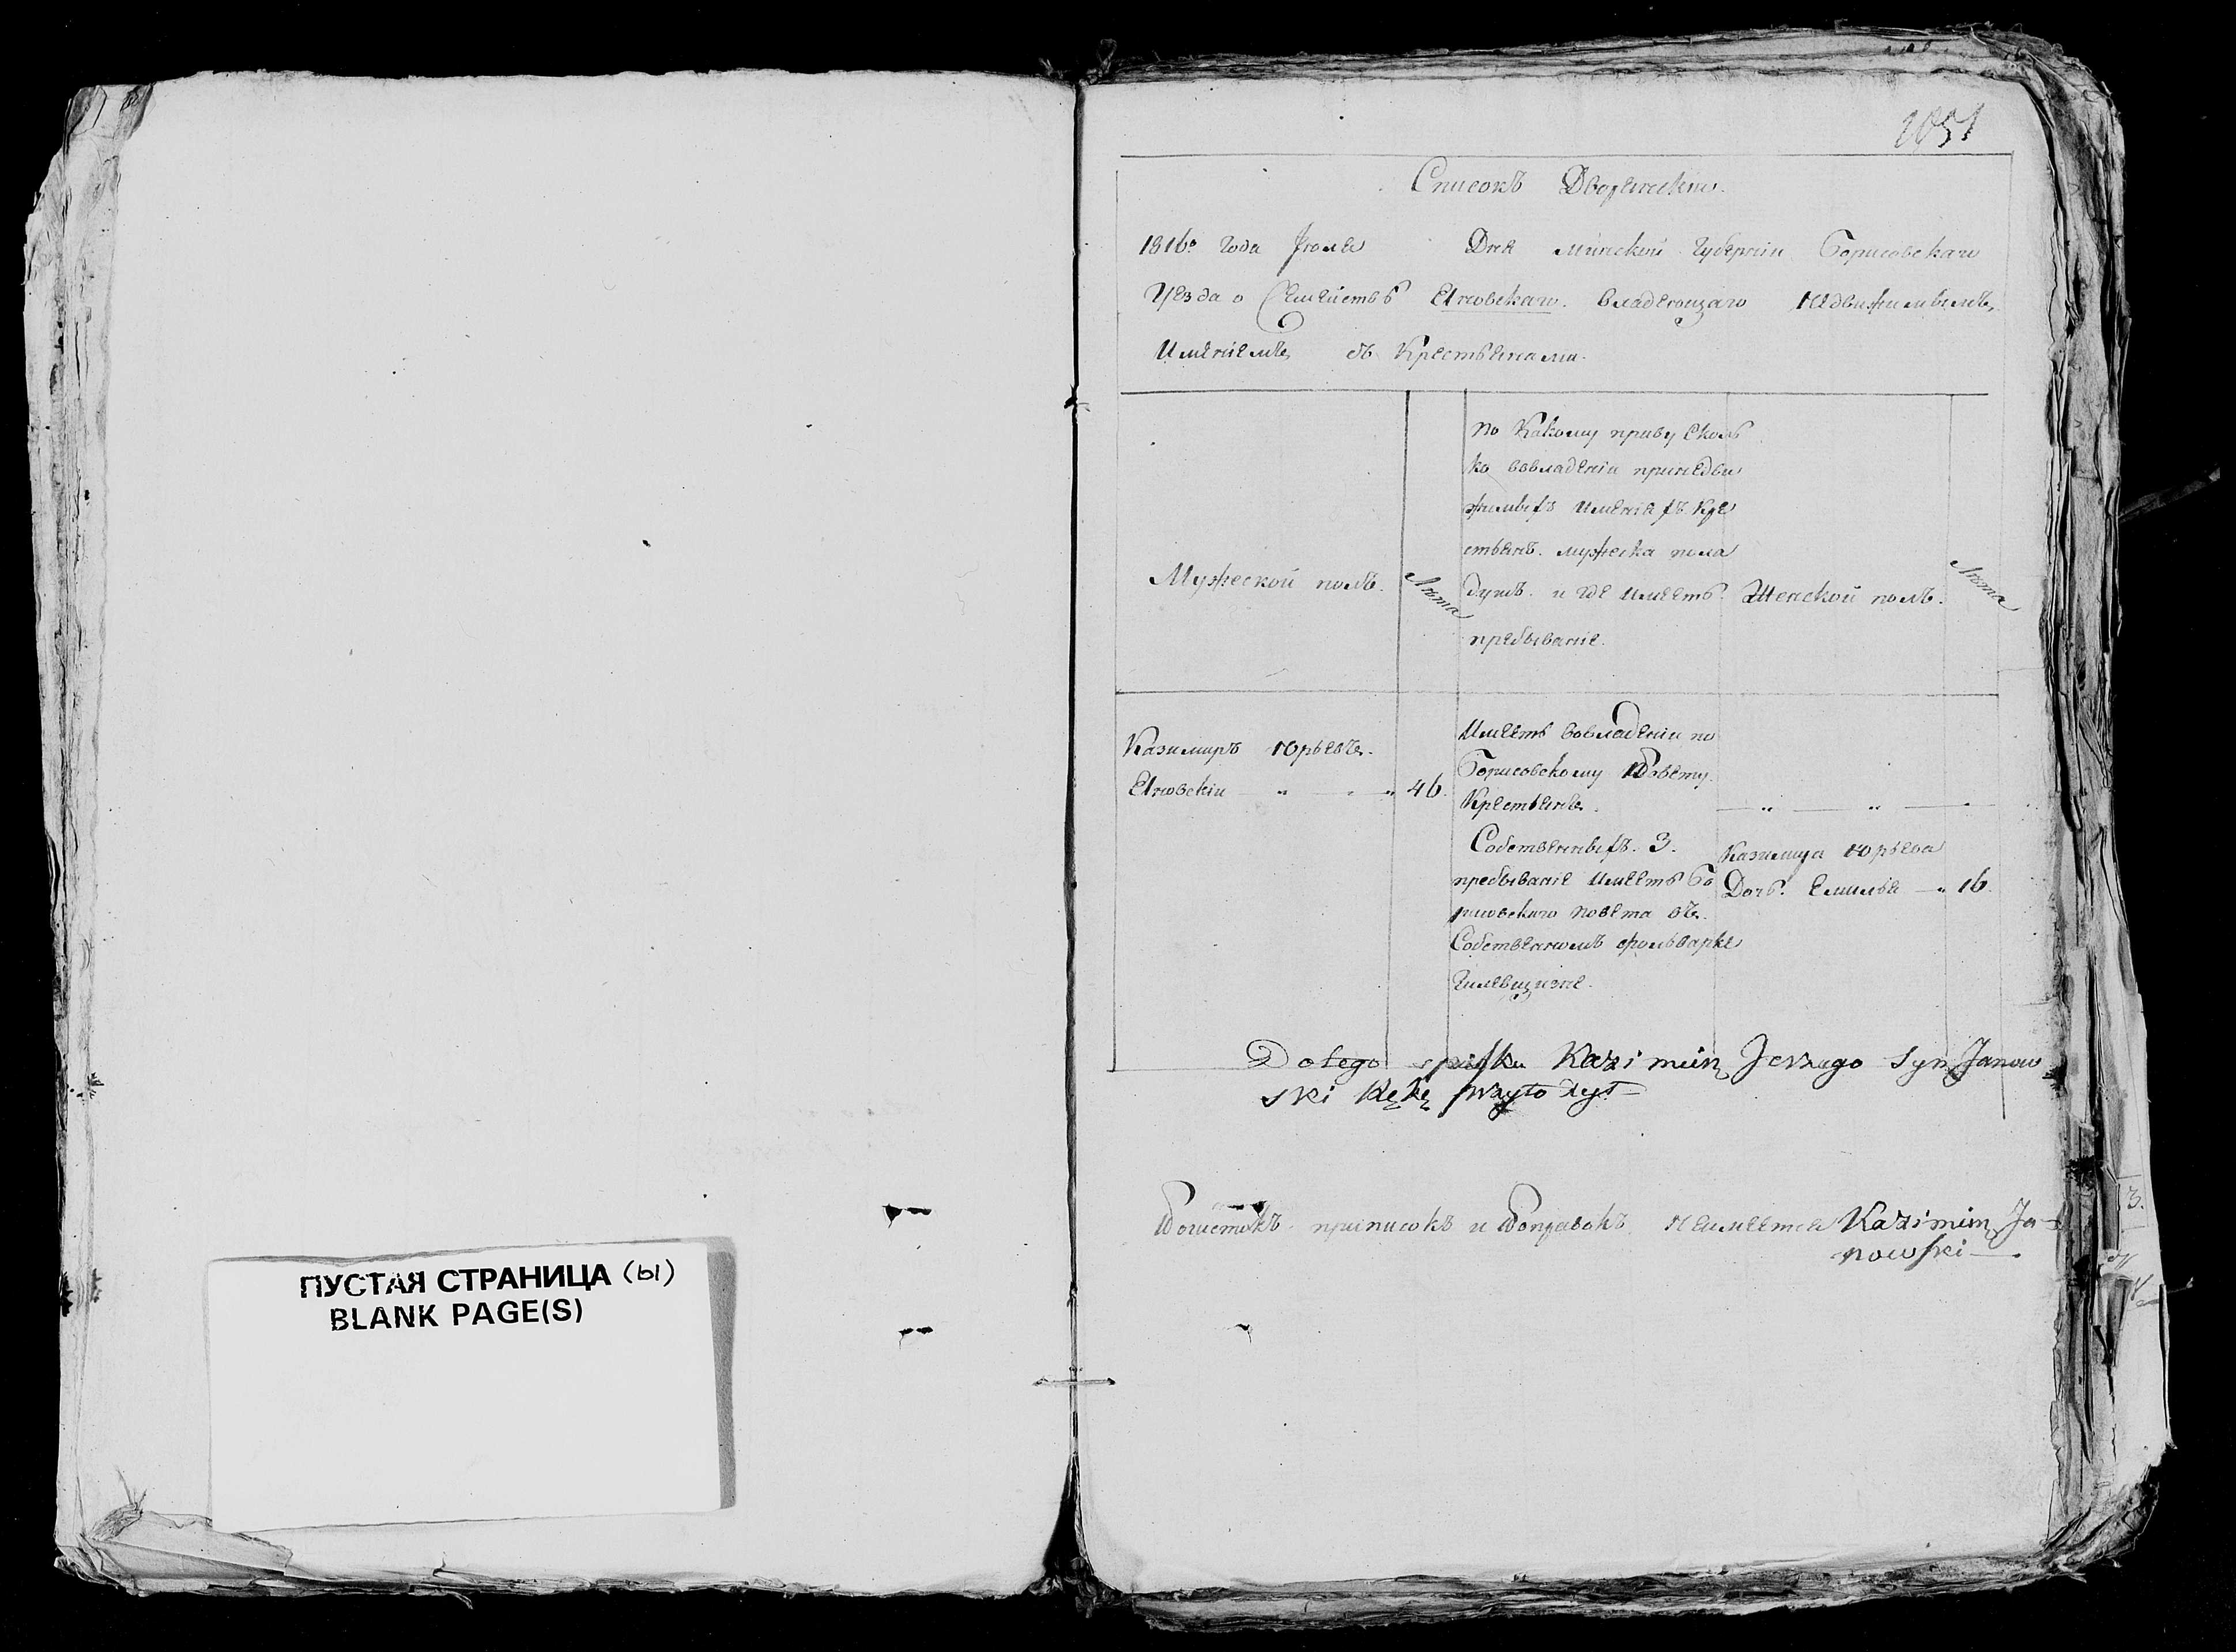 1051
Списокъ Дворянскiи.
1816го Года Іюля Дня Минской Губерніи Борисовскаго
Уезда о Семействѣ Яновскаго. Владеющаго Недвижимымъ
Имѣніемъ съ Крестьянами.
Мужеской полъ.
Лѣта
по Какому праву Сколь
ко вовладеніи принедви
жимыхъ Имѣніяхъ Кре
стьянъ. мужеска пола
душъ. и где Имѣетъ
пребываніе.
Женской полъ.
Лѣта
Казимиръ Юрьевъ
Яновскіи 46.
Имѣетъ вовладеніи по
Борисовскому Повѣту
Крестьянъ
Собственныхъ. 3.
пребываніе Имѣетъ Бо
рисовскаго повѣта въ
Собственномъ фольварке
Казимира Юрьева
Дочь. Емилья 16.
Do tego spisku Kazimirz Jerzego Syn Janow
ski Rękę przyłożył
Почистокъ приписокъ и Поправокъ Неимѣется Kazimirz Ja-
nowski
ПУСТАЯ СТРАНИЦА (ы)
BLANK PAGE(S)
3.